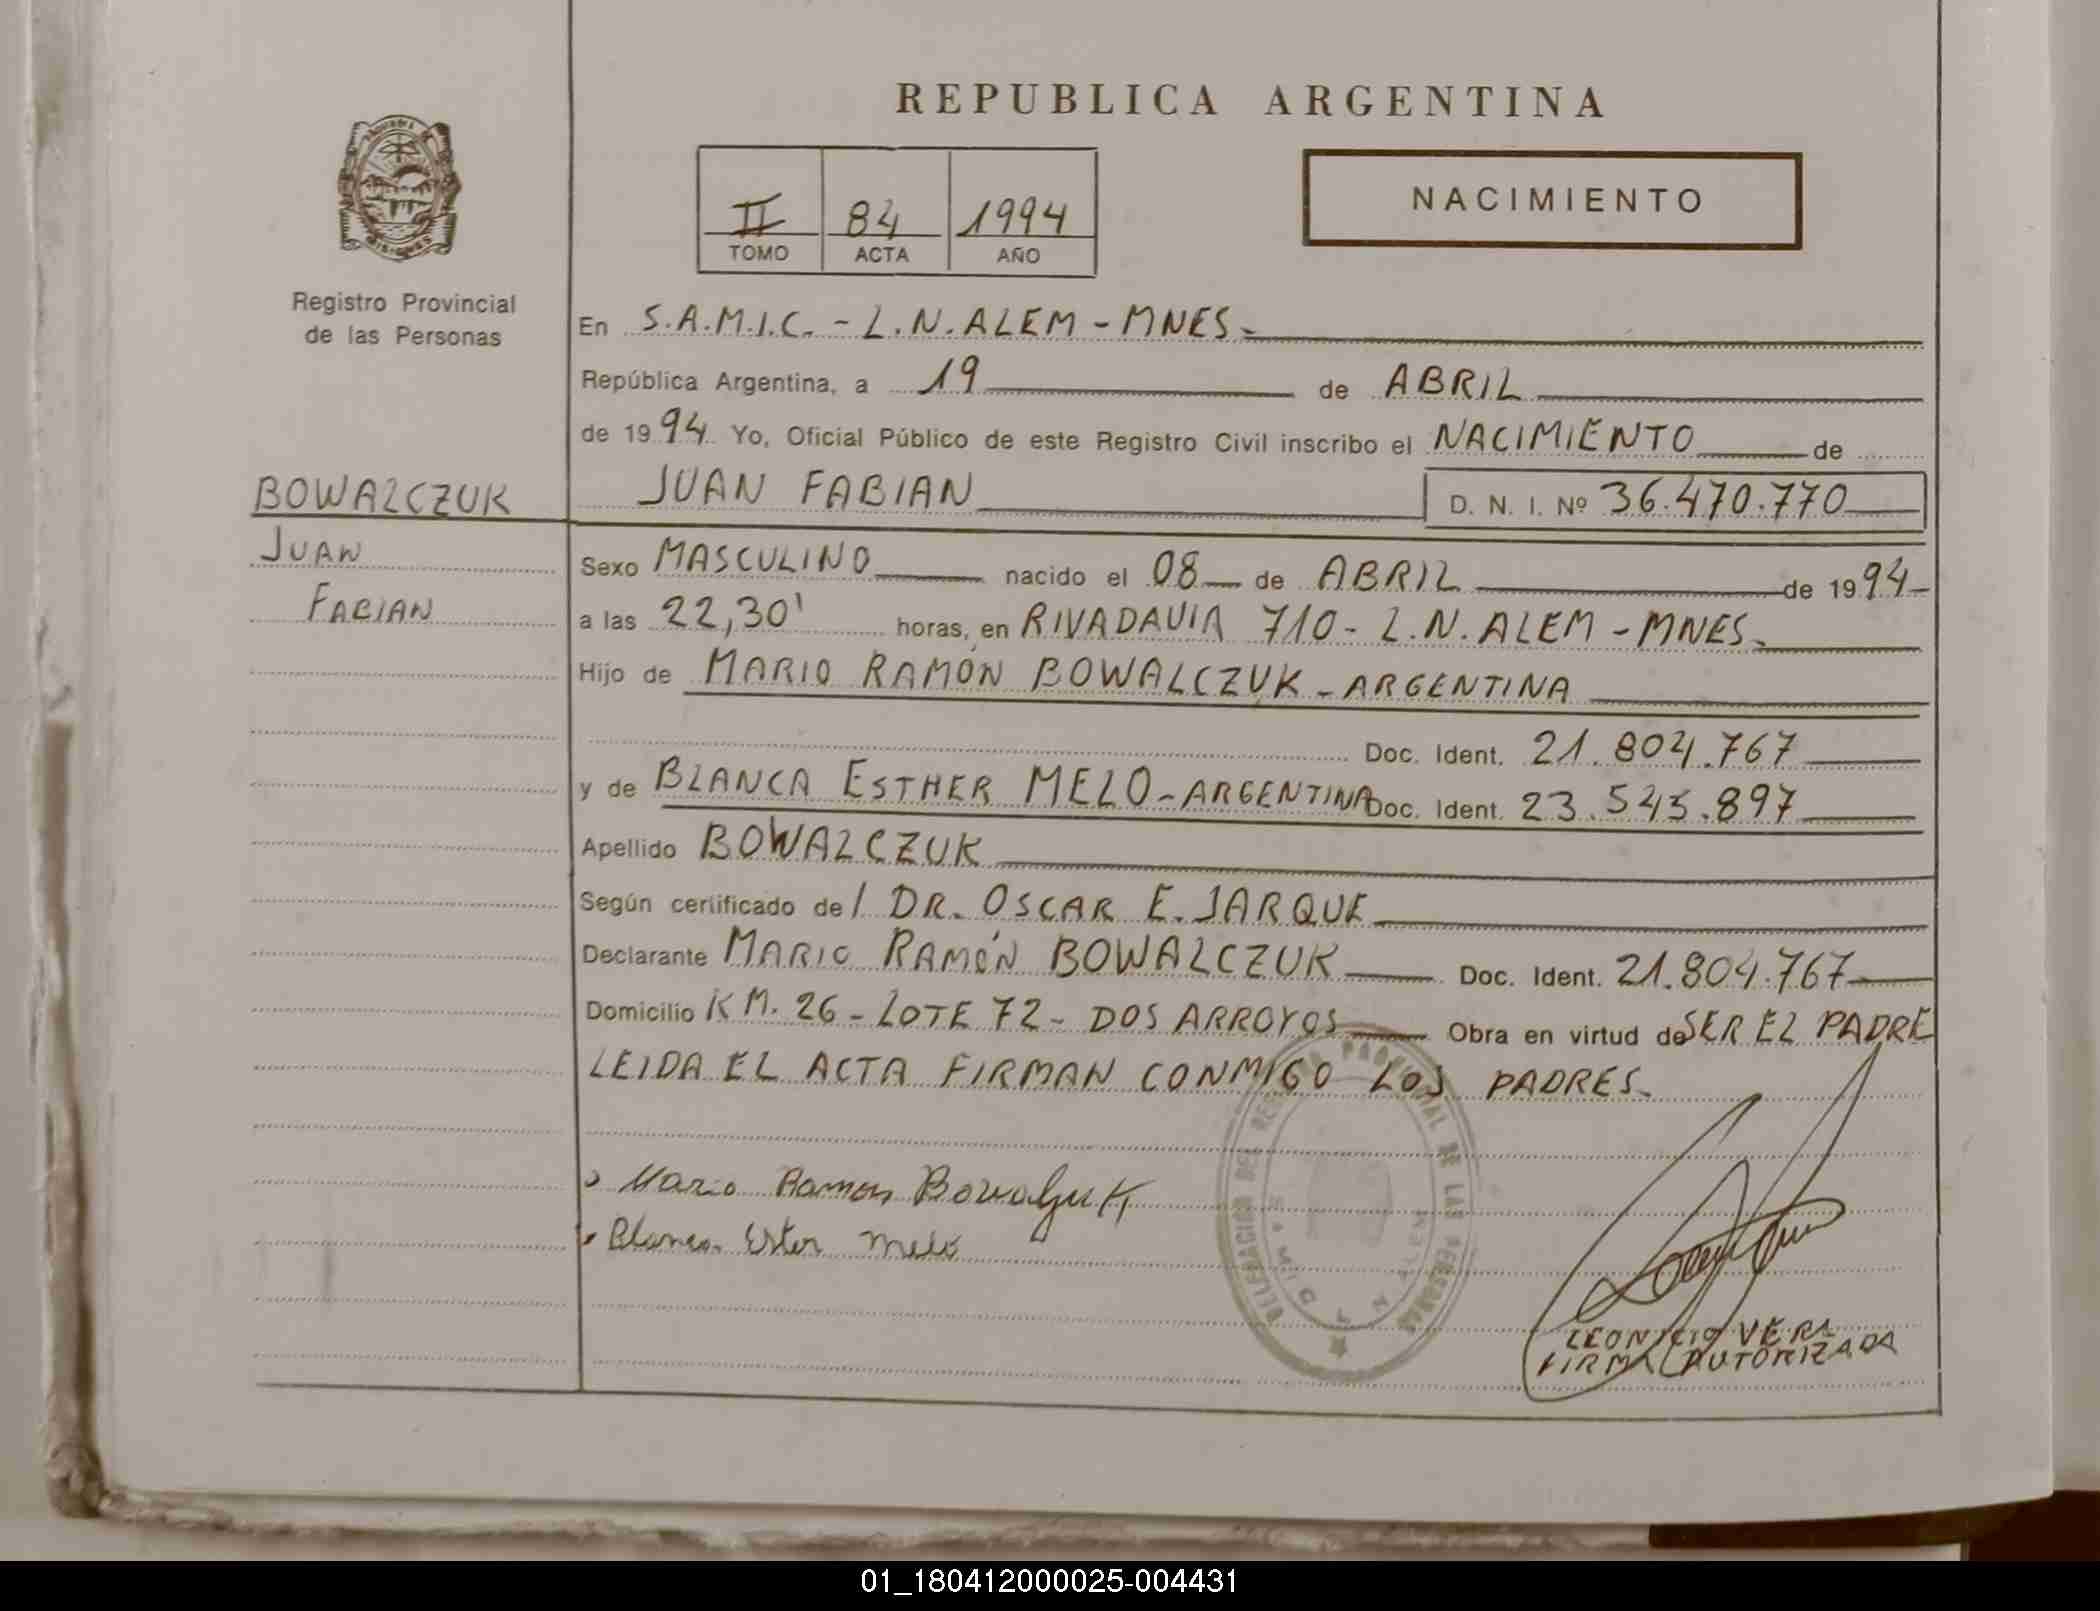 REPUBLICA ARGENTINA
II 84 1994
TOMO ACTA AÑO
NACIMIENTO
Registro Provincial
de las Personas
BOWALCZUK
JUAN
FABIAN
En S.A.M.I.C. - L.N. ALEM - MNES -
República Argentina, a 19 de ABRIL
de 1994 Yo, Oficial Público de este Registro Civil inscribo el NACIMIENTO de
JUAN FABIAN D. N. I. Nº 36.470.770
Sexo MASCULINO nacido el 08 de ABRIL de 1994-
a las 22,30' horas, en RIVADAVIA 710 - L.N. ALEM - MNES.
Hijo de MARIO RAMÓN BOWALCZUK - ARGENTINA
Doc. Ident. 21.804.767
y de BLANCA ESTHER MELO - ARGENTINA Doc. Ident. 23.545.897
Apellido BOWALCZUK
Según certificado de/ DR. OSCAR E. JARQUE
Declarante MARIO RAMÓN BOWALCZUK Doc. Ident. 21.804.767
Domicilio KM. 26 - LOTE 72 - DOS ARROYOS Obra en virtud de SER EL PADRE
LEIDA EL ACTA FIRMAN CONMIGO LOS PADRES.
Mario Ramon Bowalczuk
Blanca Ester Melo
DELEGACIÓN DEL REGISTRO PROVINCIAL DE LAS PERSONAS
N ALEM
LEONICIO VERA
FIRMA AUTORIZADA
01_180412000025-004431